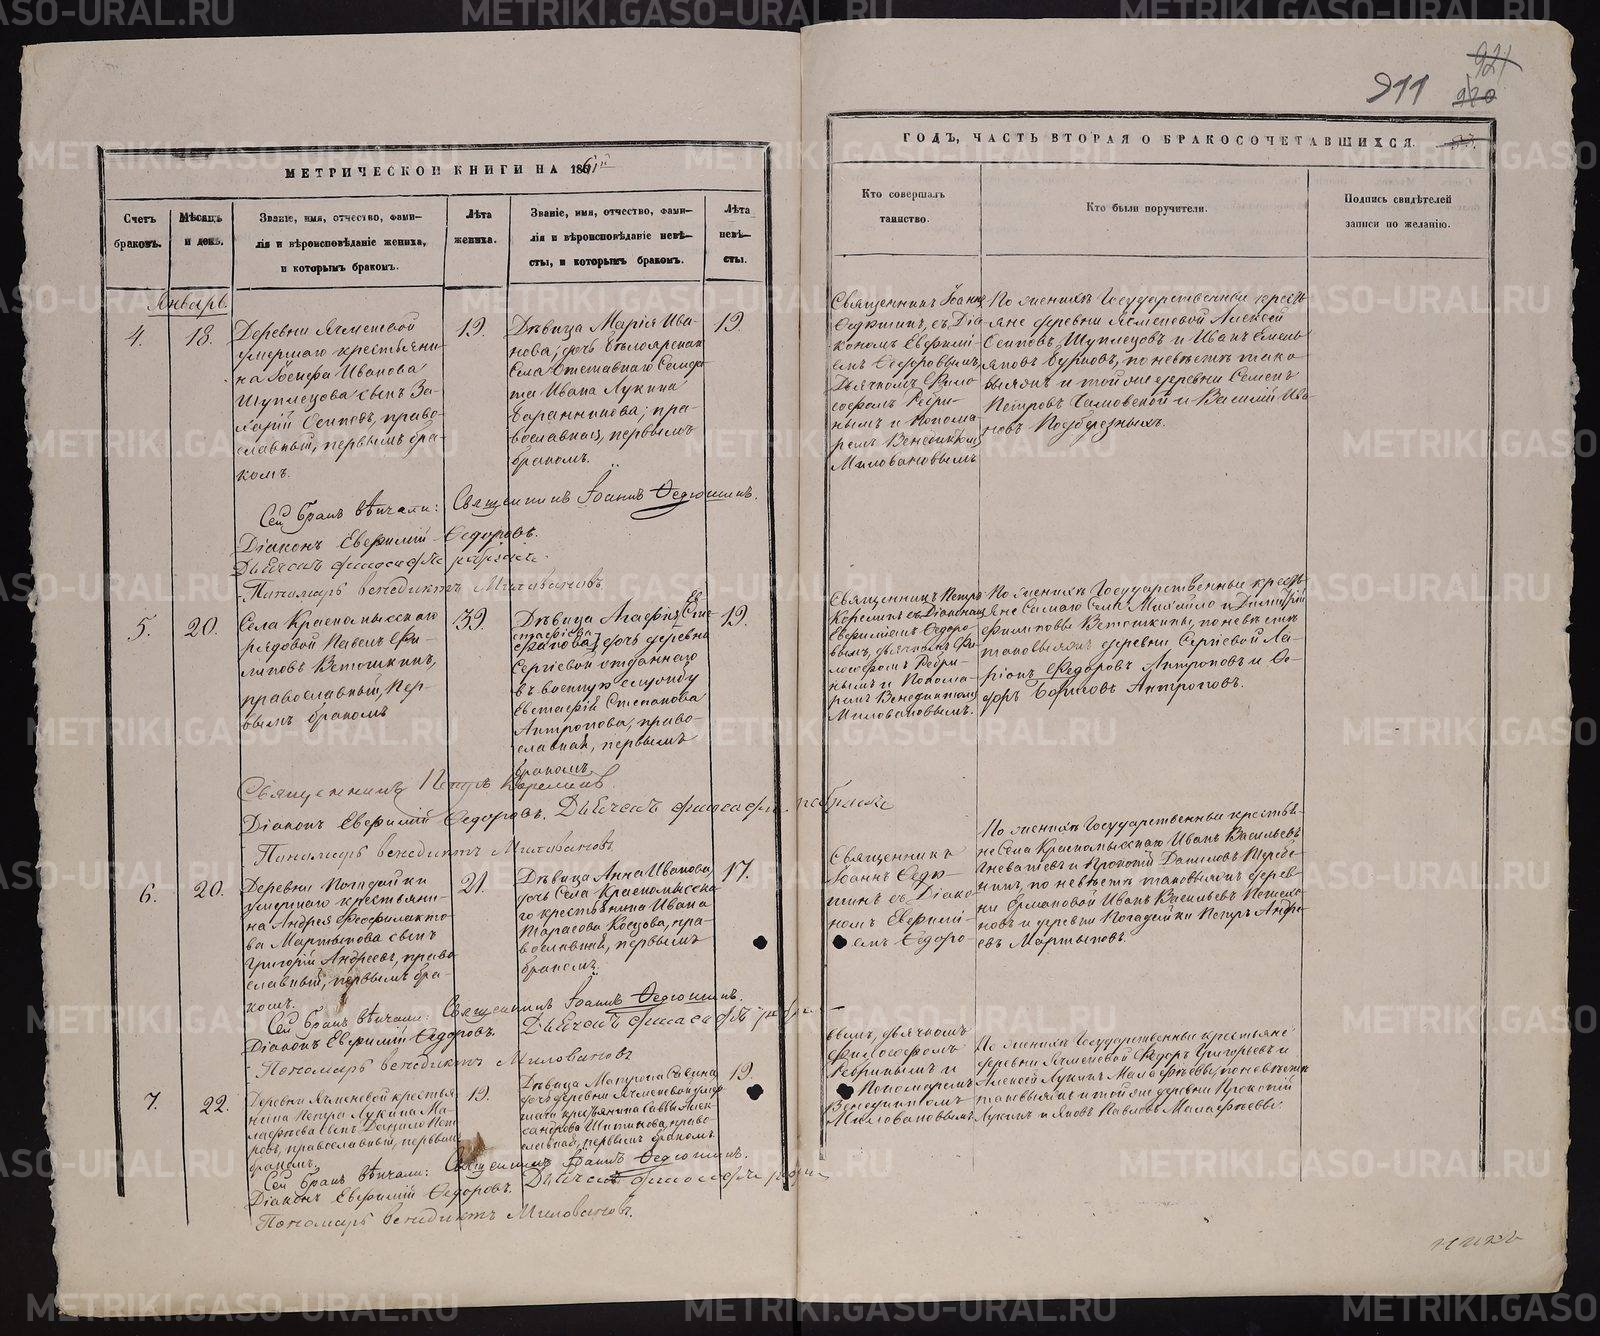 921
911 920
МЕТРИЧЕСКОЙ КНИГИ НА 1861й
ГОДЪ, ЧАСТЬ ВТОРАЯ О БРАКОСОЧЕТАВШИХСЯ.
Счетъ браковъ.
Мѣсяцъ и день.
Званіе, имя, отчество, фами-
лія и вѣроисповѣданіе жениха,
и которымъ бракомъ.
Лѣта
жениха.
Званіе, имя, отчество, фами-
лія и вѣроисповѣданіе невѣ-
сты, и которымъ бракомъ.
Лѣта
невѣ-
сты.
Кто совершалъ
таинство.
Кто были поручители.
Подпись свидѣтелей
записи по желанію.
Январь
4.
18.
Деревни Ячменевой
умершаго крестьяни-
на Іосифа Иванова
Шуплецова сынъ За-
харій Осиповъ, право-
славный, первымъ бра-
комъ.
19.
Дѣвица Марія Ива-
нова, дочь Бѣлоярскаго
Села Отставнаго Солда-
та Ивана Лукина
Баранникова; пра-
вославная, первымъ
бракомъ.
19.
Священникъ Іоаннъ
Федюшинъ, съ Діа-
кономъ Евфимі-
емъ Ѳедоровымъ,
Дьячкомъ Фило-
софомъ Ребри-
нымъ и Понома-
ремъ Венедиктомъ
Миловановымъ
По женихѣ Государственные кресть-
яне деревни Ячменевой Алексѣй
Осиповъ Шуплецовъ и Иванъ Емель-
яновъ Бурковъ, по невѣстѣ тако-
выяжъ и той же деревни Семенъ
Петровъ и Василій Ива-
новъ Подберезныхъ.
Сей бракъ вѣнчали: Священникъ Іоаннъ Ѳедюшинъ.
Діаконъ Евфимій Ѳедоровъ.
Дьячекъ философъ ребринъ
Пономарь венедиктъ Миловановъ
5.
20.
Села Краснамысскаго
рядовой Павелъ Фи-
липовъ Ветошкинъ,
православный, пер-
вымъ бракомъ
39.
Дѣвица Агафія
дочь деревни
Сергіевой отданнаго
въ военную службу
Евстафія Степанова
Антропова, право-
славная, первымъ
бракомъ
19.
Священникъ Петръ
Корелинъ съ Діакономъ
Евфиміемъ Ѳедоро-
вымъ, дьячкомъ Фи-
лософомъ Ребри-
нымъ и Понома-
ремъ Венедиктомъ
Миловановымъ.
По женихѣ Государственные кресть-
яне Самаго Села Михайло и Димитрій
Филиповы Ветошкины, по невѣстѣ
таковыяжъ деревни Сергіевой Ла-
ріонъ Ѳедоровъ Антроповъ и Ѳе-
доръ Борисовъ Антроповъ.
Священникъ Петръ Корелинъ.
Діаконъ Евфимій Ѳедоровъ. Дьячекъ философъ ребринъ
Пономарь венедиктъ Миловановъ
6.
20.
Деревни Погадайки
умершаго крестьяни-
на Андрея Феофилакто-
ва Мартынова сынъ
Григорій Андреевъ, право-
славный, первымъ бра-
комъ.
21.
Дѣвица Анна Иванова,
дочь Села Красномысска-
го крестьянина Ивана
Тарасова Косцова, пра-
вославная, первымъ
бракомъ.
17.
Священникъ
Іоаннъ Ѳедю-
шинъ съ Діако-
номъ Евфимі-
емъ Ѳедоро-
По женихѣ Государственные крестья-
не Села Красномысскаго Иванъ Васильевъ
Игнатьевъ и Прокопій Даниловъ Теребе-
нинъ, по невѣстѣ таковыяжъ дерев-
ни Ермаковой Иванъ Васильевъ
и деревни Погадайки Петръ Андре-
евъ Мартыновъ.
Сей бракъ вѣнчали: Священникъ Іоаннъ Ѳедюшинъ.
Діаконъ Евфимій Ѳедоровъ. Дьячекъ философъ ребринъ
Пономарь венедиктъ Миловановъ
7.
22.
Деревни Ячменевой крестья-
нина Петра Лукина Ма-
лафѣева сынъ Данило Пет-
ровъ, православный, первымъ
бракомъ.
19.
Дѣвица Матрона Савина
дочь деревни Ячменевой умер-
шаго крестьянина Саввы Алек-
сандрова Шитикова, право-
славная, первымъ бракомъ
19.
вымъ, дьячкомъ
Философомъ
Ребринымъ и
Пономаремъ
Венедиктомъ
Миловановымъ
По женихѣ Государственные крестьяне
деревни Ячменевой Ѳедоръ Григорьевъ и
Алексѣй Лукинъ Малафѣевы, по невѣстѣ
таковыяжъ и той же деревни Прокопій
Лукинъ и Яковъ Павловъ Малафѣевы
Сей бракъ вѣнчали: Священникъ Іоаннъ Ѳедюшинъ.
Діаконъ Евфимій Ѳедоровъ. Дьячекъ философъ ребринъ
Пономарь венедиктъ Миловановъ.
METRIKI.GASO-URAL.RU